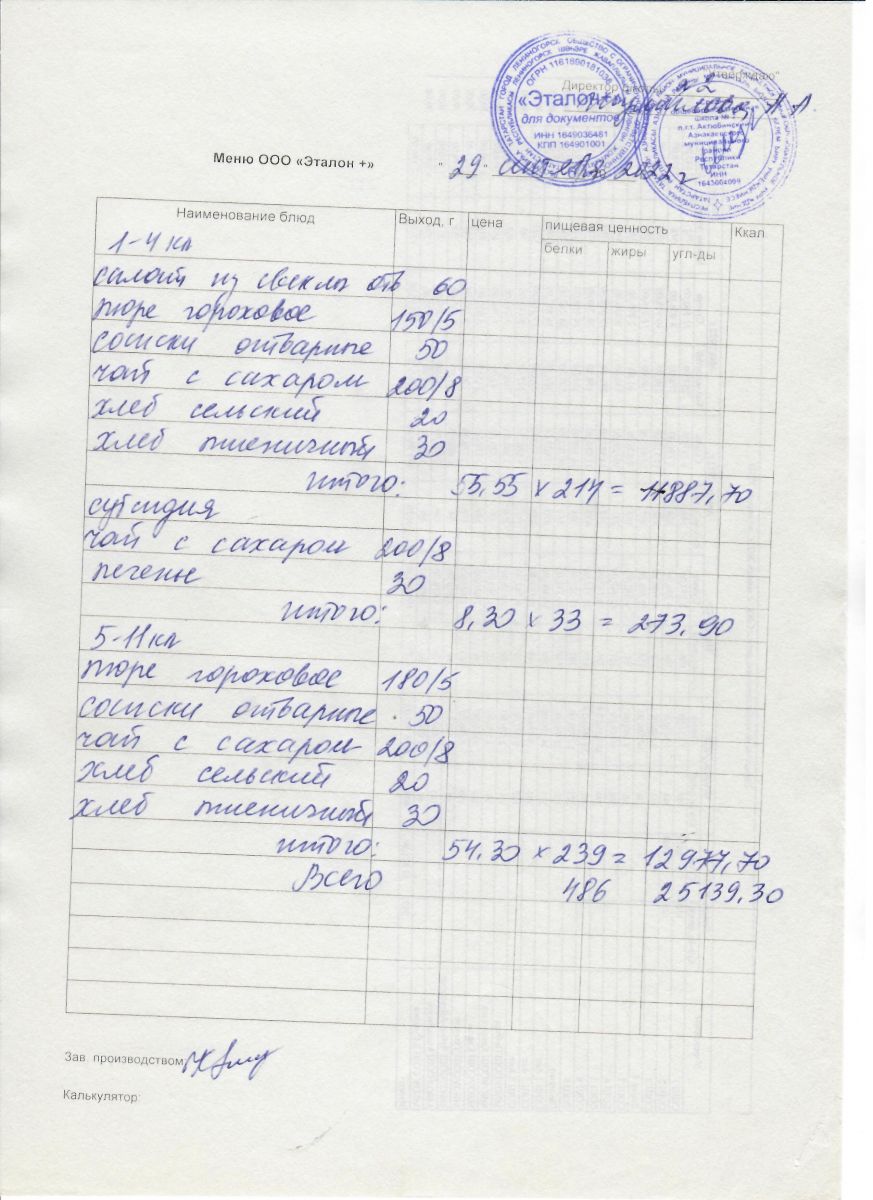 "утверждаю"
Директор школы №2
Меню ООО «Эталон +»
" 29 " сентября 2022 г
ОГРН 1161690181036
«Эталон+»
для документов
ИНН 1649036481
КПП 164901001
школа №
п.г.т. Актюбинский
Азнакаевского
муниципального
района
Республики
Татарстан
ИНН
1643004099
Наименование блюд Выход, г цена пищевая ценность Ккал
белки жиры угл-ды
1-4 кл
салат из свеклы отв 60
пюре гороховое 150/5
сосиски отварные 50
чай с сахаром 200/8
хлеб сельский 20
хлеб пшеничный 30
итого: 55,55 х 214 = 11887,70
субсидия
чай с сахаром 200/8
печенье 30
итого: 8,30 х 33 = 273,90
5-11 кл
пюре гороховое 180/5
сосиски отварные 50
чай с сахаром 200/8
хлеб сельский 20
хлеб пшеничный 30
итого: 54,30 х 239 = 12977,70
Всего 486 25139,30
Зав. производством:
Калькулятор: